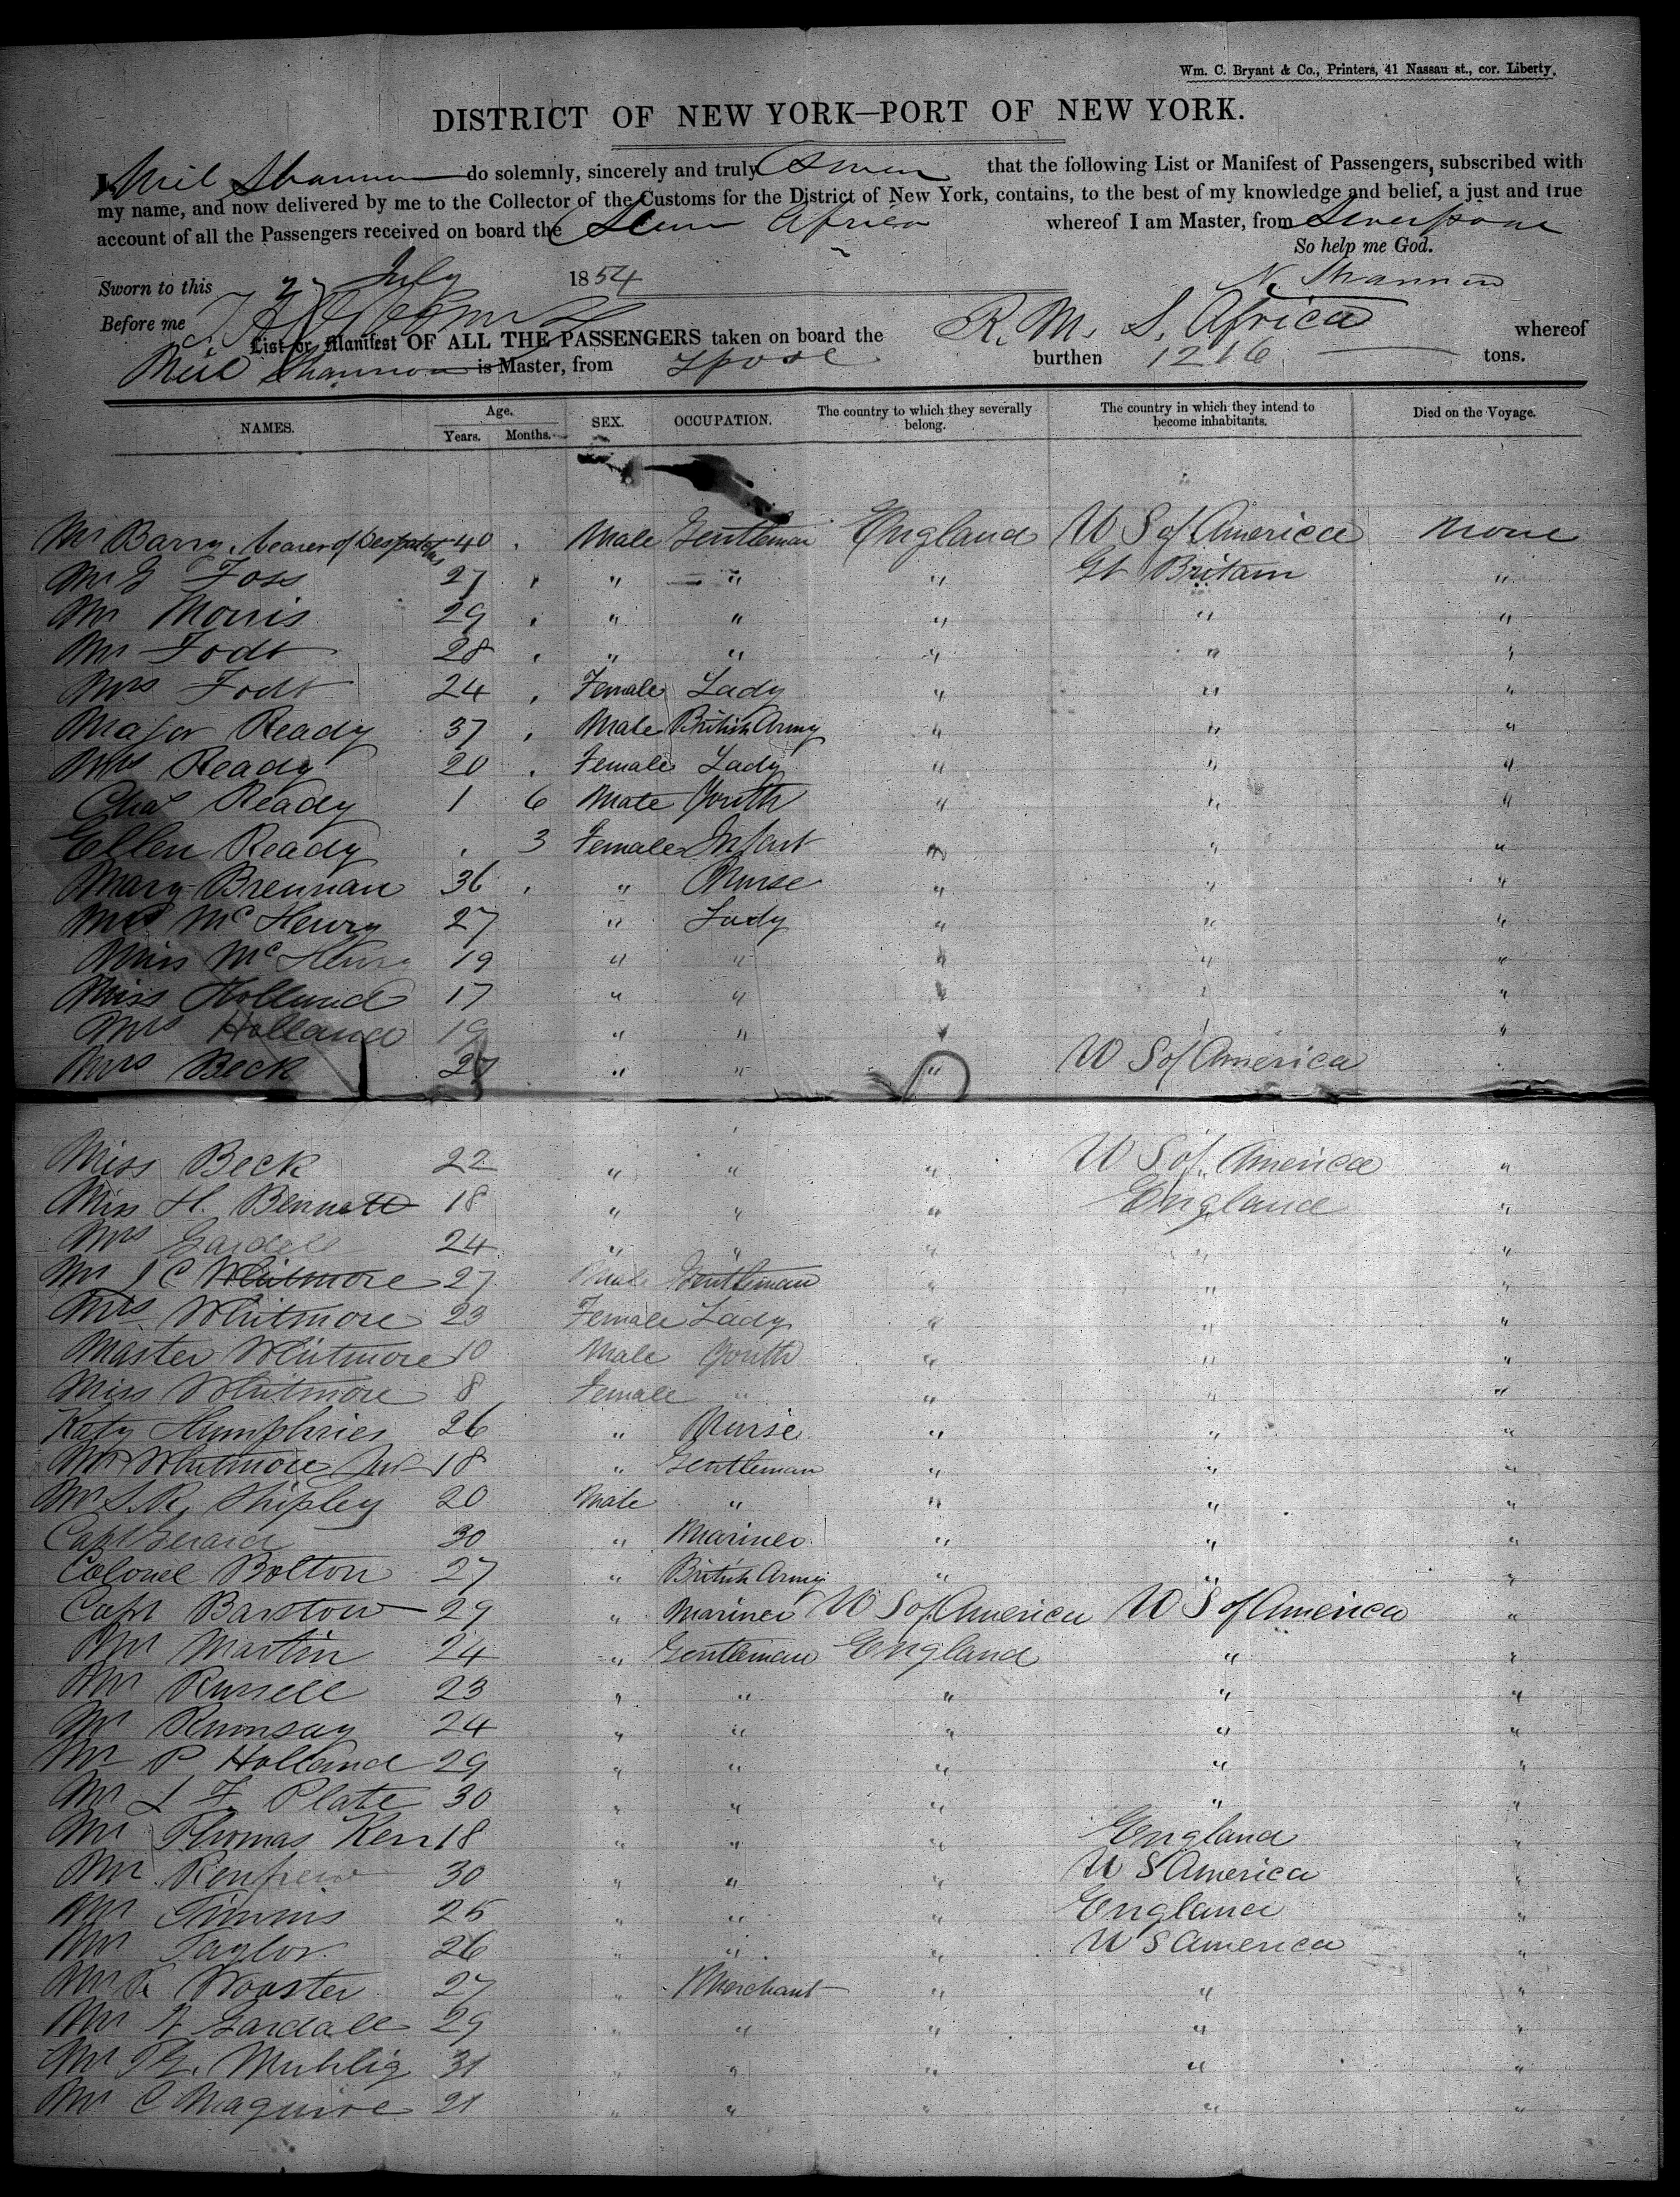 Wm. C. Bryant & Co., Printers, 41 Nassau st., cor. Liberty.
DISTRICT OF NEW YORK—PORT OF NEW YORK.
I, Neil Shannon do solemnly, sincerely and truly Swear that the following List or Manifest of Passengers, subscribed with
my name, and now delivered by me to the Collector of the Customs for the District of New York, contains, to the best of my knowledge and belief, a just and true
account of all the Passengers received on board the Africa whereof I am Master, from Liverpool
So help me God.
Sworn to this 27 July 1854 N. Shannon
Before me
List or Manifest OF ALL THE PASSENGERS taken on board the R. M. S. Africa whereof
Neil Shannon is Master, from Lpool burthen 1216 tons.
NAMES. Age. Years. Months. SEX. OCCUPATION. The country to which they severally belong. The country in which they intend to become inhabitants. Died on the Voyage.
Mr Barry, bearer of Despatches 40 Male Gentleman England U S of America None
Mr J Foss 27 " " " Gt Britain "
Mr Morris 29 " " " " "
Mr Fodt 28 " " " " "
Mrs Fodt 24 Female Lady " " "
Major Ready 37 Male British Army " " "
Mrs Ready 20 Female Lady " " "
Chas Ready 1 6 Male Youth " " "
Ellen Ready 3 Female Infant " " "
Mary Brennan 36 " Nurse " " "
Mrs McHenry 27 " Lady " " "
Miss McHenry 19 " " " " "
Miss Holland 17 " " " " "
Mrs Holland 19 " " " "
Mrs Beck 27 " " " U S of America
Miss Beck 22 " " " U S of America "
Miss H. Bennett 18 " " " England "
Mrs Gardell 24 " " " " "
Mr J C Whitmore 27 Male Gentleman " " "
Mrs Whitmore 23 Female Lady " " "
Master Whitmore 10 Male Youth " " "
Miss Whitmore 8 Female " " " "
Katy Humphries 26 " Nurse " " "
Mr Whitmore Jun 18 " Gentleman " " "
Mr S. R. Shipley 20 Male " " " "
Capt Gerard 30 " Mariner " " "
Colonel Bolton 27 " British Army " " "
Capt Barstow 29 " Mariner U S of America U S of America "
Mr Martin 24 " Gentleman England " "
Mr Russell 23 " " " " "
Mr Rumsay 24 " " " " "
Mr P Holland 29 " " " " "
Mr L F. Plate 30 " " " " "
Mr Thomas Kerr 18 " " " England "
Mr Renfrew 30 " " " U S America "
Mr Timmis 25 " " " England "
Mr Taylor 26 " " " U S America "
Mr Wooster 27 " Merchant " " "
Mr Gardall 29 " " " " "
Mr Muhlig 31 " " " " "
Mr C Maguire 21 " " " " "